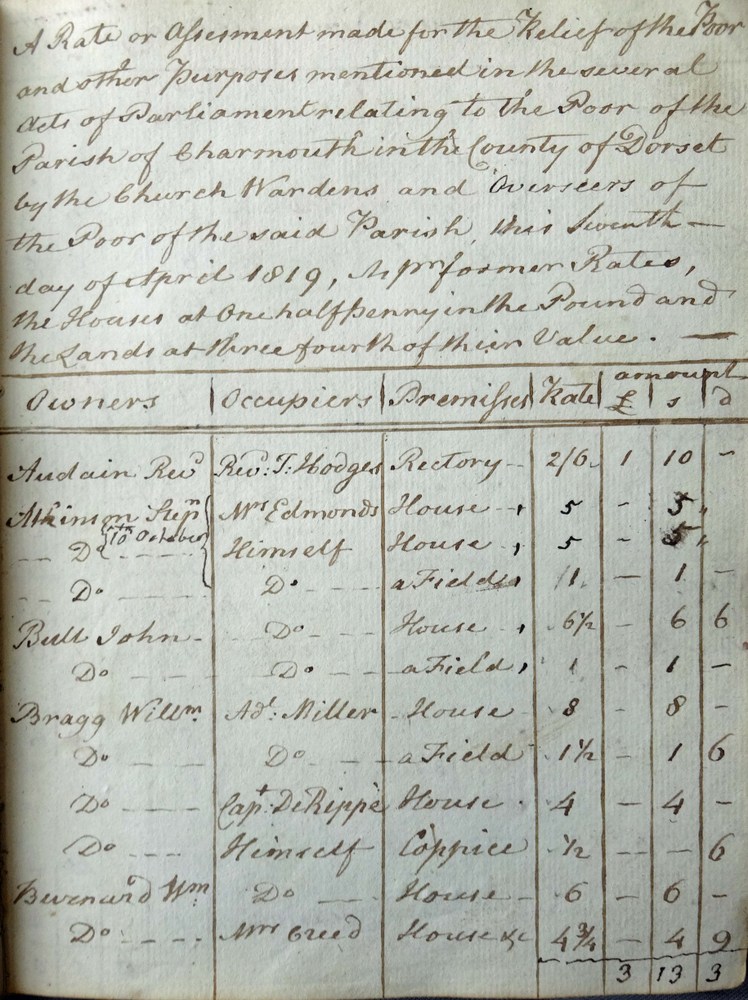 A Rate or Assesment made for the Relief of the Poor
and other Purposes mentioned in the several
Acts of Parliament relating to the Poor of the
Parish of Charmouth in the County of Dorset
by the Church Wardens and Overseers of
the Poor of the said Parish, this Seventh —
day of April 1819, As pr former Rates,
the Houses at One half Penny in the Pound and
the Lands at three fourth of their Value. —
Owners Occupiers Premisses Rate amount £ s d
Audain Revd Revd: T: Hodges Rectory - 2/6. 1 10 -
Atkinson Stepn Mrs Edmonds House - 5 - 5 "
-- Do 10th October Himself House 5 - 5 "
-- Do Do a Field 1 - 1 -
Bull John - Do House 6½ - 6 6
Do Do a Field 1 - 1 -
Bragg Willm Adl: Miller House 8 - 8 -
Do Do a Field 1½ - 1 6
Do Capt: De Rippe House 4 - 4 -
Do Himself Coppice ½ -- - 6
Burnard Wm Do House 6 - 6 -
Do Mrs Creed House &c 4¾ - 4 9
3 13 3